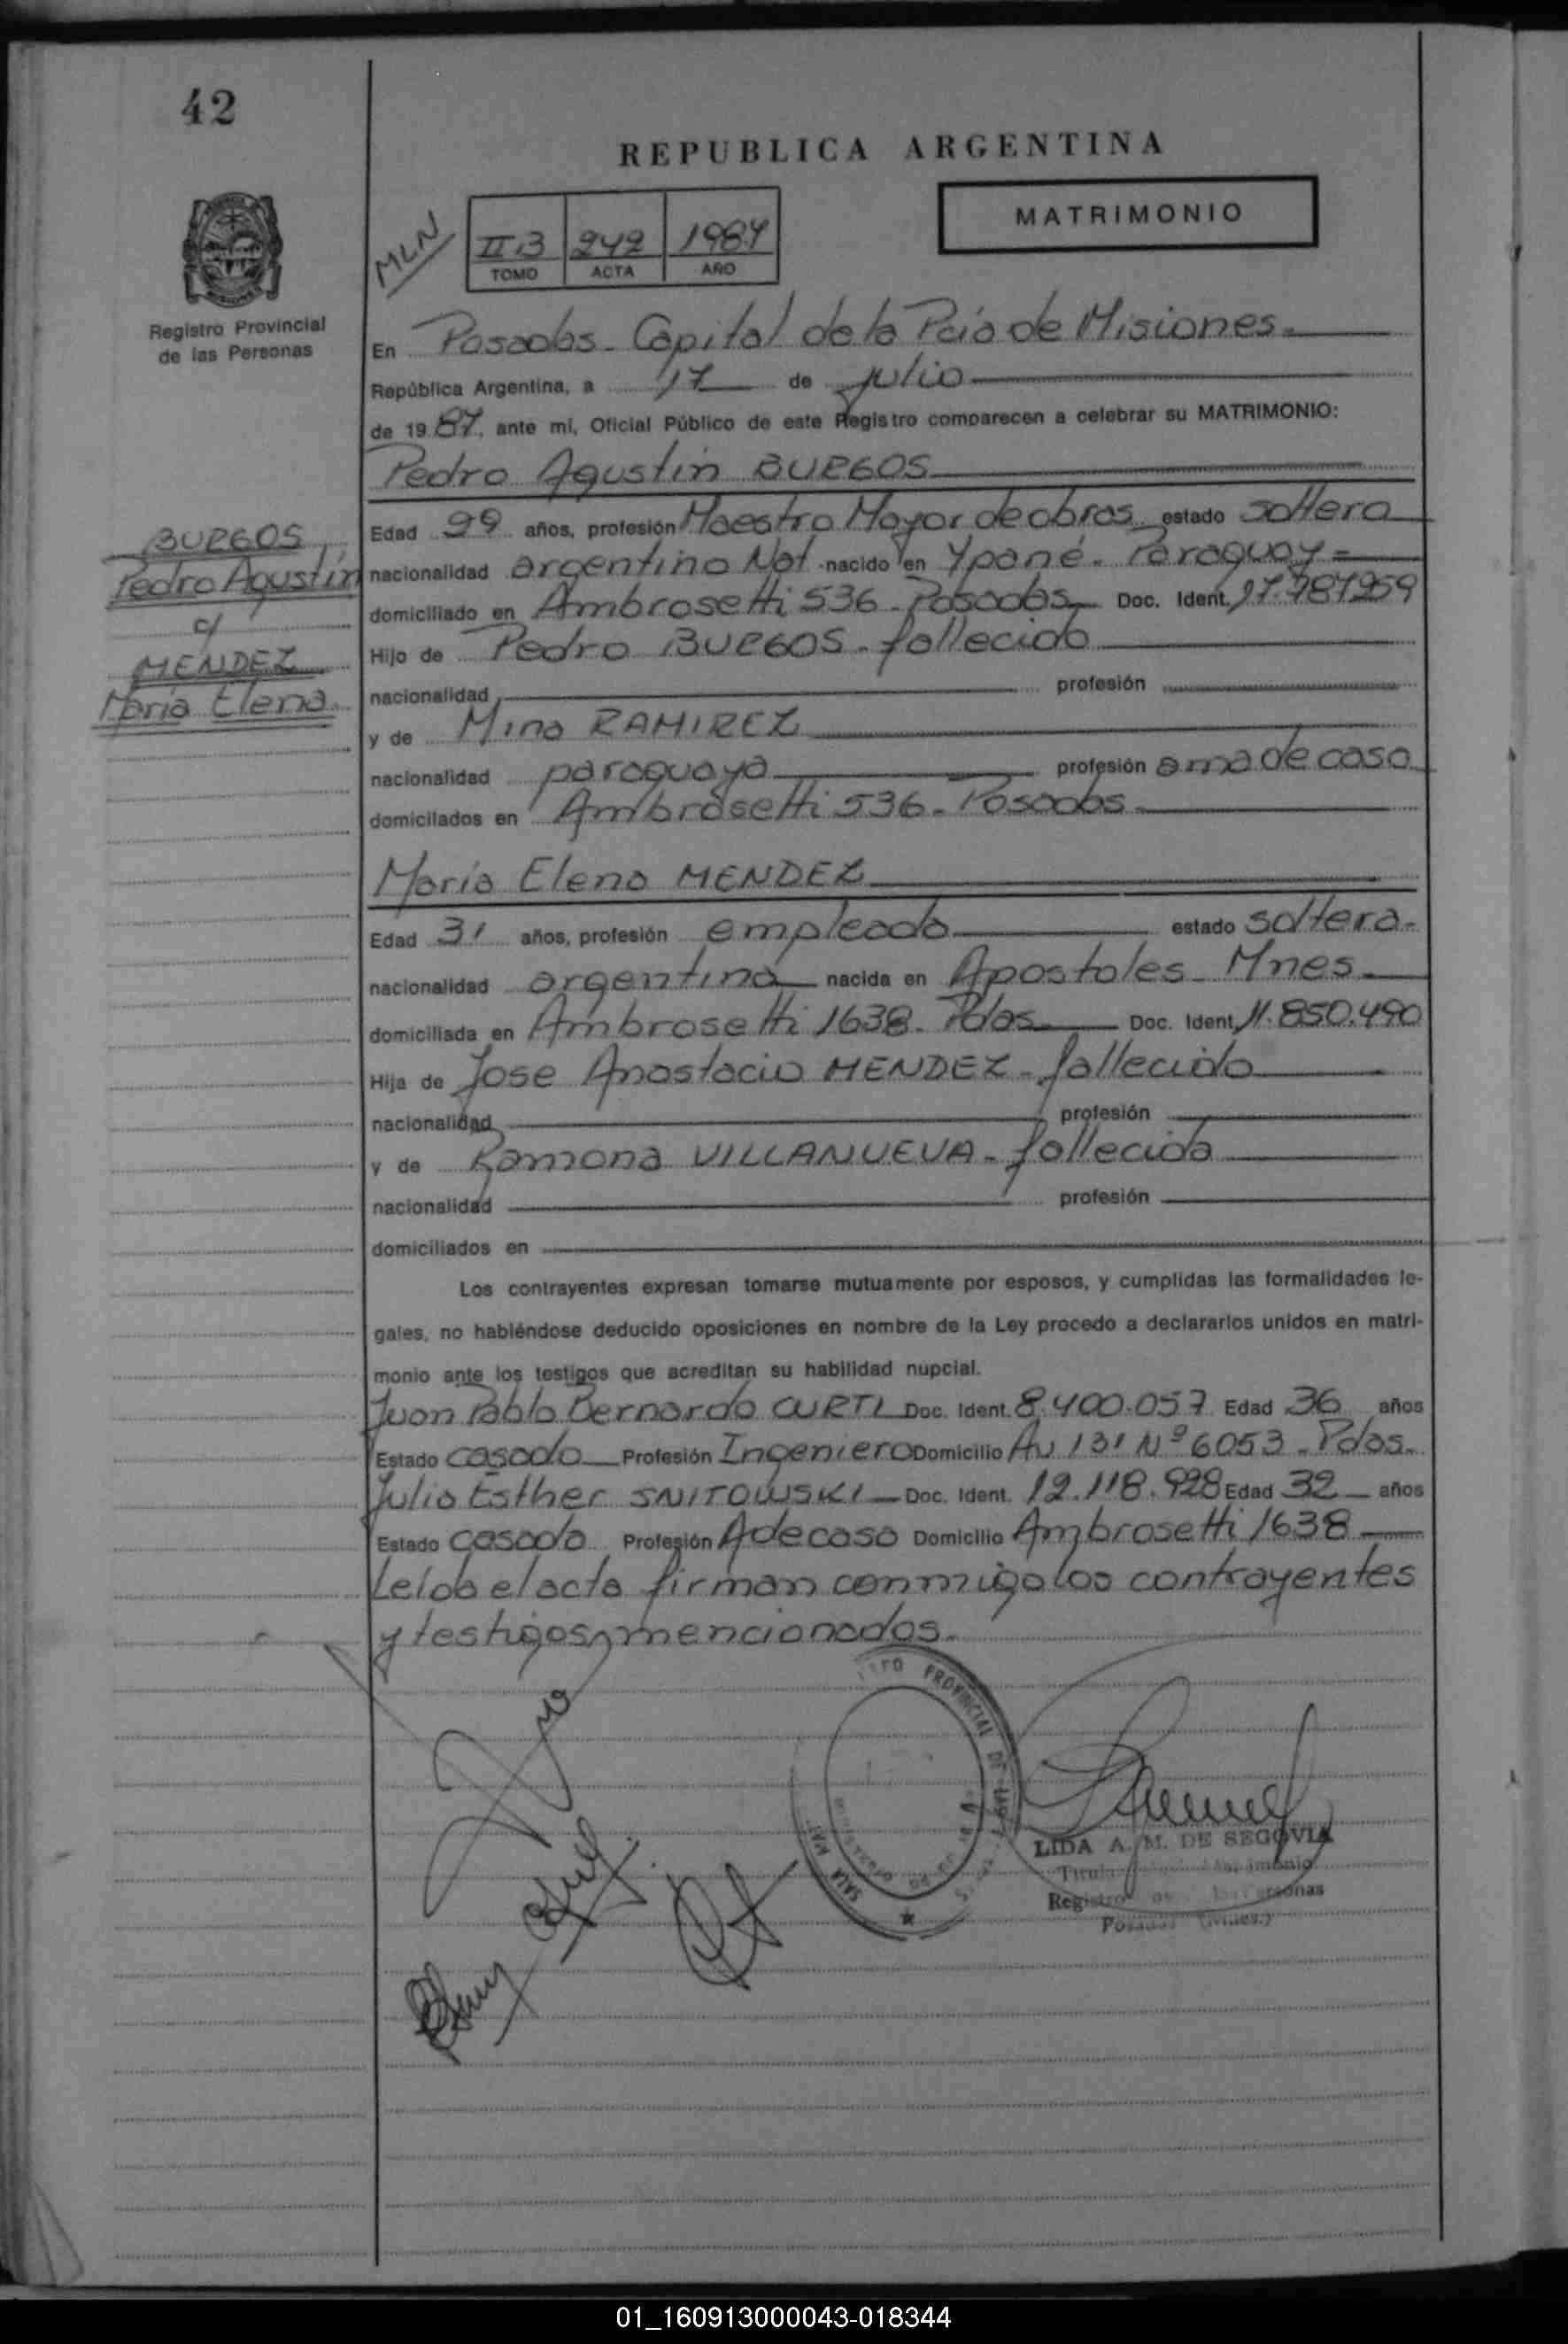 42
REPUBLICA ARGENTINA
MATRIMONIO
MLN
II.3 242 1987
TOMO ACTA AÑO
Registro Provincial
de las Personas
En Posadas - Capital de la Pcia de Misiones.
República Argentina, a 17 de julio
de 19 87, ante mí, Oficial Público de este Registro comparecen a celebrar su MATRIMONIO:
Pedro Agustin BURGOS
BURGOS
Pedro Agustin
c/
MENDEZ
Maria Elena
Edad 29 años, profesión Maestro Mayor de obras estado soltero
nacionalidad argentino Nat. nacido en Ypané - Paraguay =
domiciliado en Ambrosetti 536 - Posadas Doc. Ident. 17.787959
Hijo de Pedro BURGOS - fallecido
nacionalidad profesión
y de Mina RAMIREZ
nacionalidad paraguaya profesión ama de casa
domicilados en Ambrosetti 536 - Posadas -
Maria Elena MENDEZ
Edad 31 años, profesión empleada estado soltera -
nacionalidad argentina nacida en Apostoles - Mnes.
domiciliada en Ambrosetti 1638 - Pdas. Doc. Ident. 11.850.490
Hija de Jose Anastacio MENDEZ - fallecido
nacionalidad profesión
y de Ramona VILLANUEVA - fallecida
nacionalidad profesión
domiciliados en
Los contrayentes expresan tomarse mutuamente por esposos, y cumplidas las formalidades le-
gales, no habiéndose deducido oposiciones en nombre de la Ley procedo a declararlos unidos en matri-
monio ante los testigos que acreditan su habilidad nupcial.
Juan Pablo Bernardo CURTI Doc. Ident. 8.400.057 Edad 36 años
Estado casado Profesión Ingeniero Domicilio Av 131 Nº 6053 - Pdas.
Julia Esther SNITOWSKI Doc. Ident. 12.118.928 Edad 32 años
Estado casada Profesión A de casa Domicilio Ambrosetti 1638
Leida el acta firman conmigo los contrayentes
y testigos mencionados.
PROVINCIAL DE
SALA MAT.
LIDA A. M. DE SEGOVIA
Registro Personas
Posadas (Mnes.)
01_160913000043-018344